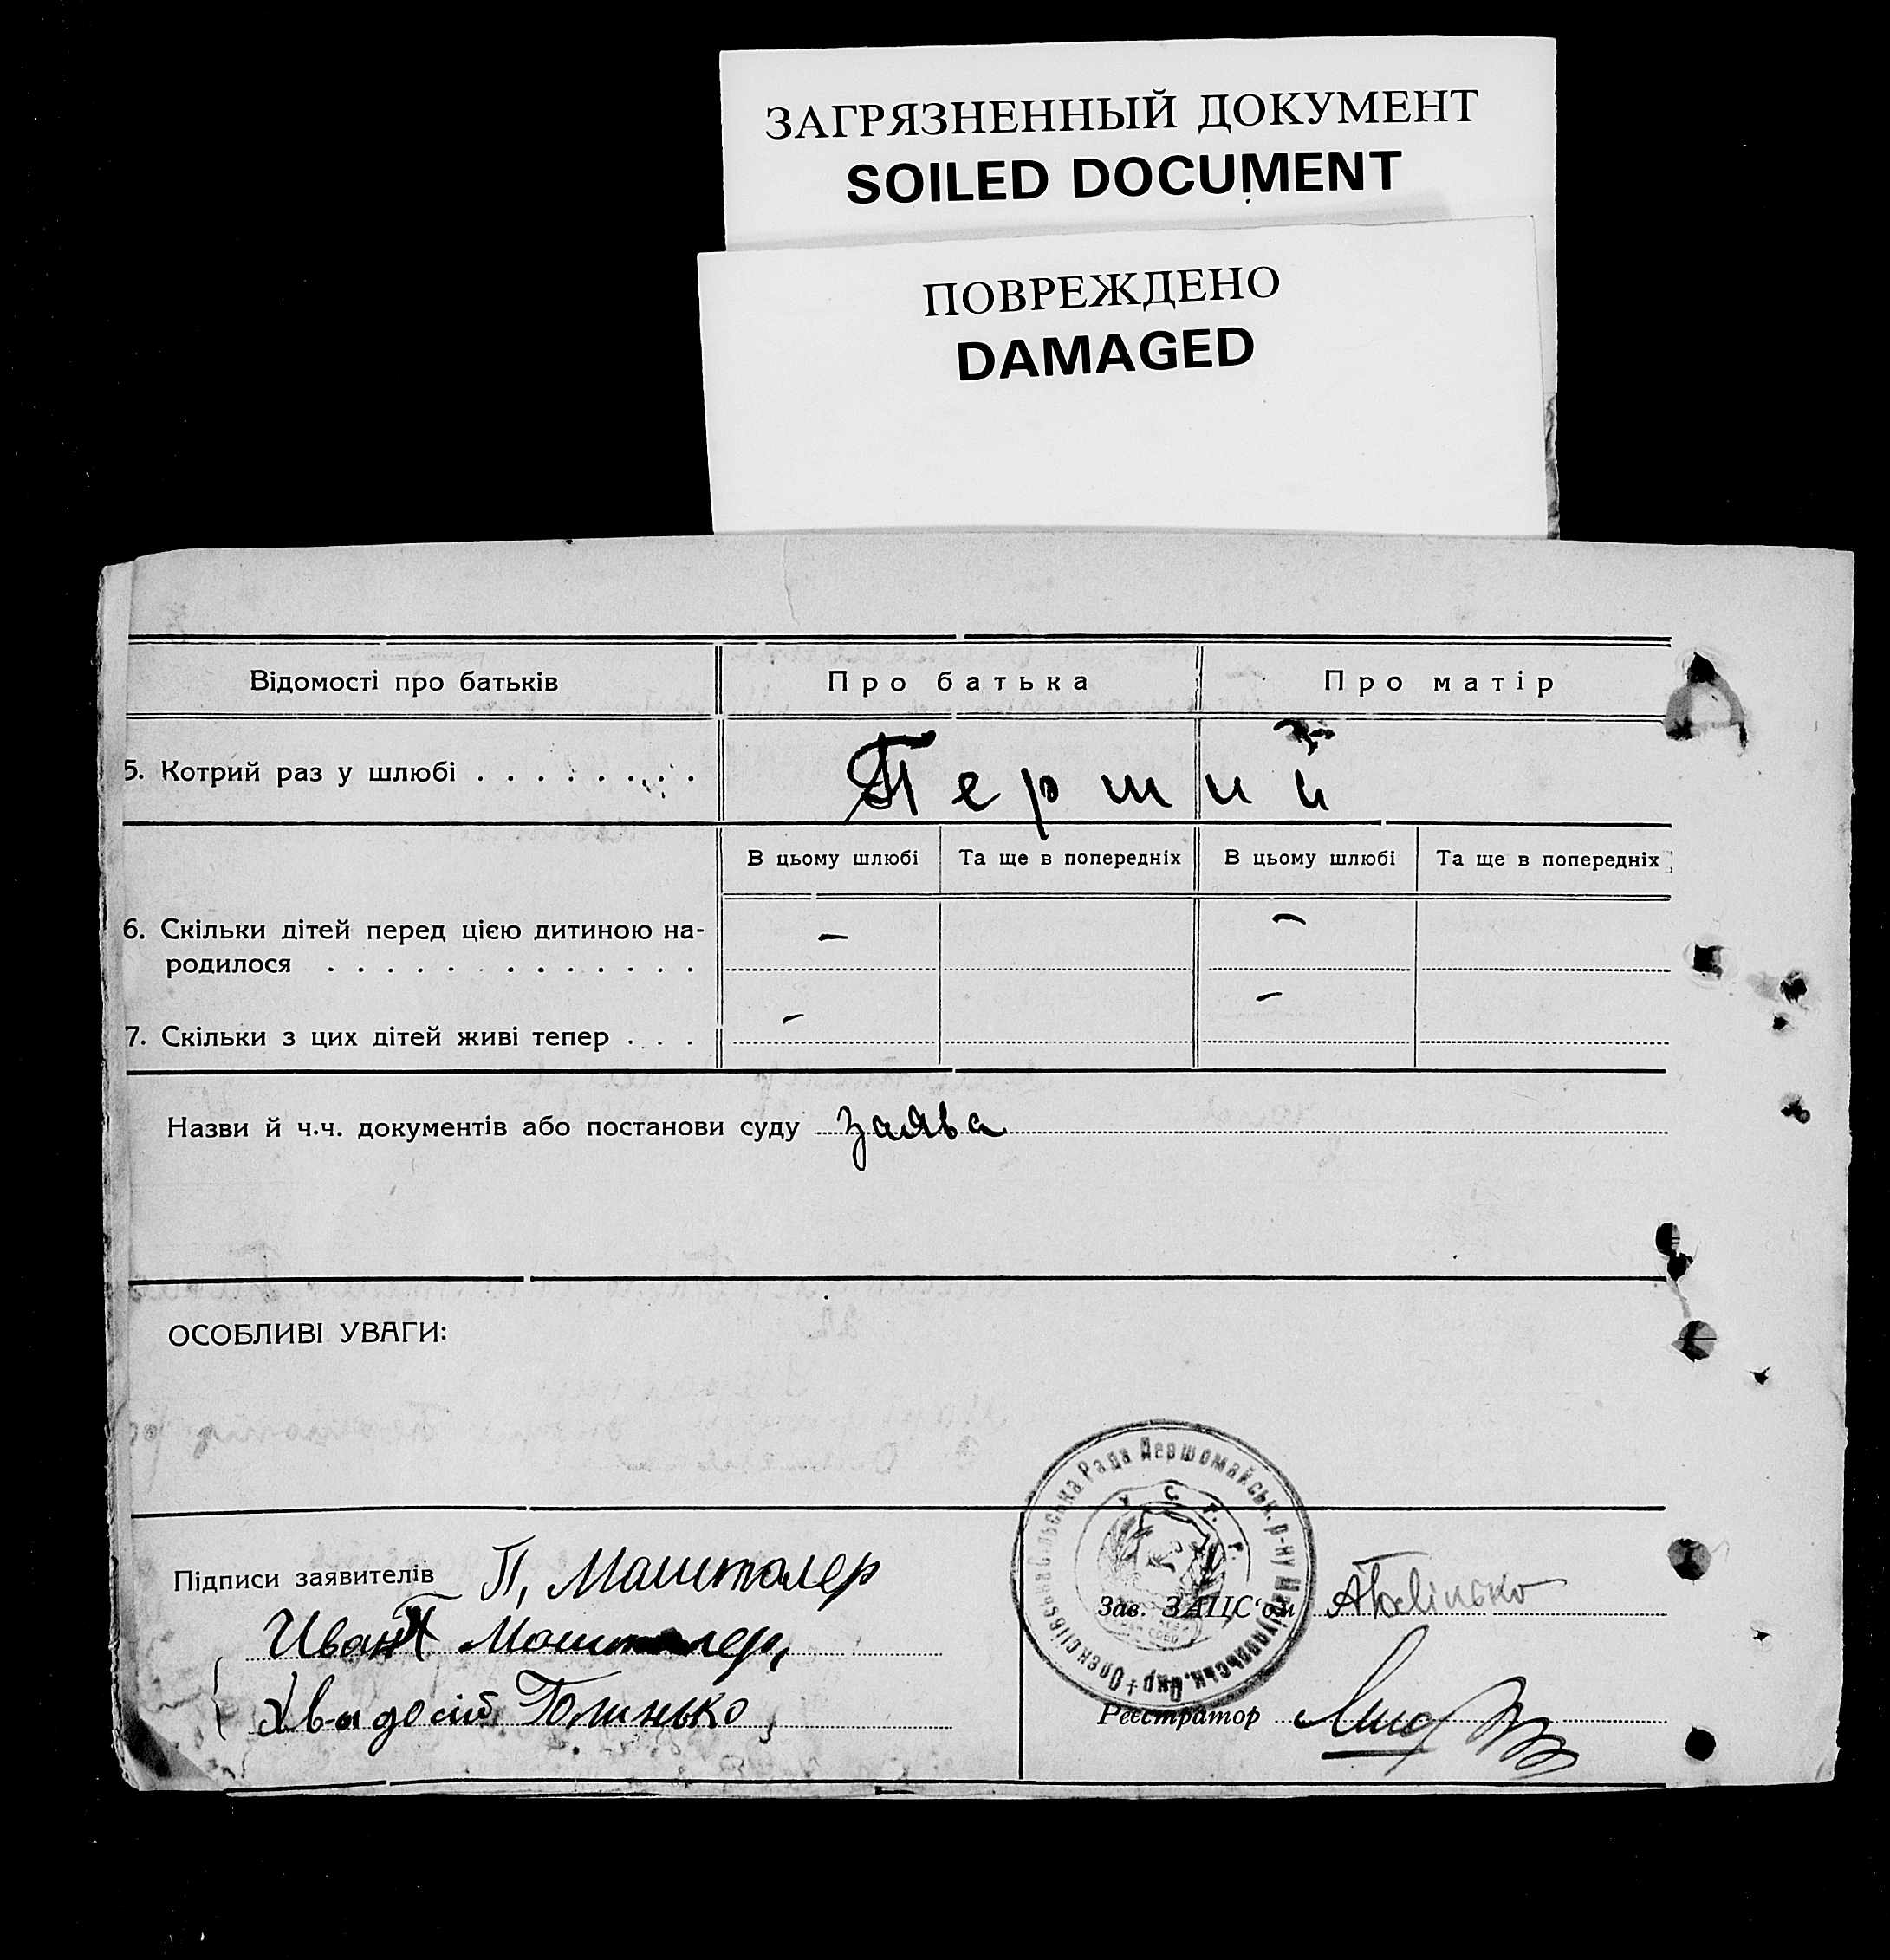 ЗАГРЯЗНЕННЫЙ ДОКУМЕНТ
SOILED DOCUMENT
ПОВРЕЖДЕНО
DAMAGED
Відомості про батьків Про батька Про матір
5. Котрий раз у шлюбі . . . . . . . . Перший
В цьому шлюбі Та ще в попередніх В цьому шлюбі Та ще в попередніх
6. Скільки дітей перед цією дитиною на- — —
родилося . . . . . . . . . . . . .
7. Скільки з цих дітей живі тепер . . . — —
Назви й ч.ч. документів або постанови суду заява
ОСОБЛИВІ УВАГИ:
Олексіївська Сільська Рада Первомайськ. р-ну Маріюпольськ. Окр.
У.С.Р.Р.
Підписи заявителів П, Машталер
Зав. ЗАЦС'ом
Иван Машталер,
Голинько,
Реєстратор